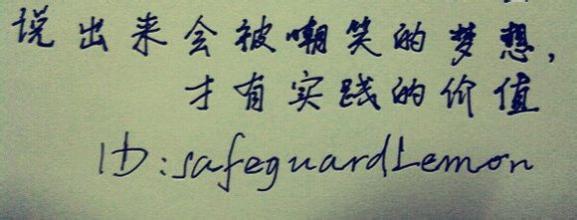 说出来会被嘲笑的梦想,
才有实践的价值
ID:safeguardLemon